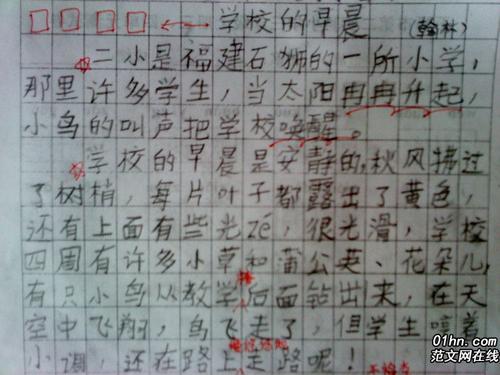 学校的早晨 (翰林)
二小是福建石狮的一所小学,
那里许多学生,当太阳冉冉升起,
小鸟的叫声把学校唤醒。
学校的早晨是安静的,秋风拂过
了树梢,每片叶子都露出了黄色,
还有上面有些光zé,很光滑,学校
四周有许多小草和蒲公英、花朵儿,
有只小鸟从教学后面钻出来,在天
空中飞翔,鸟飞走了,但学生哼着
小调,还在路上走路呢!
01hn.com
范文网在线